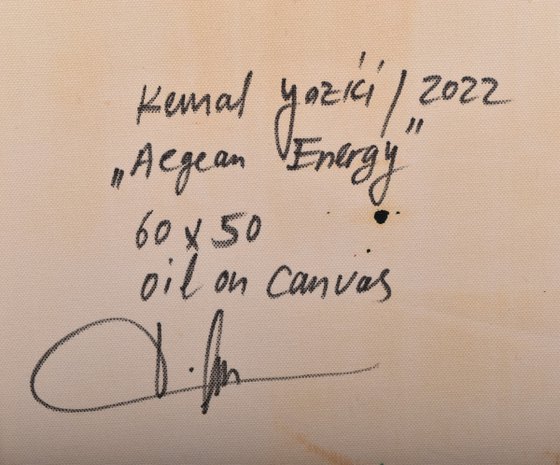 Kemal yazici / 2022
„Aegean Energy"
60 x 50
oil on canvas